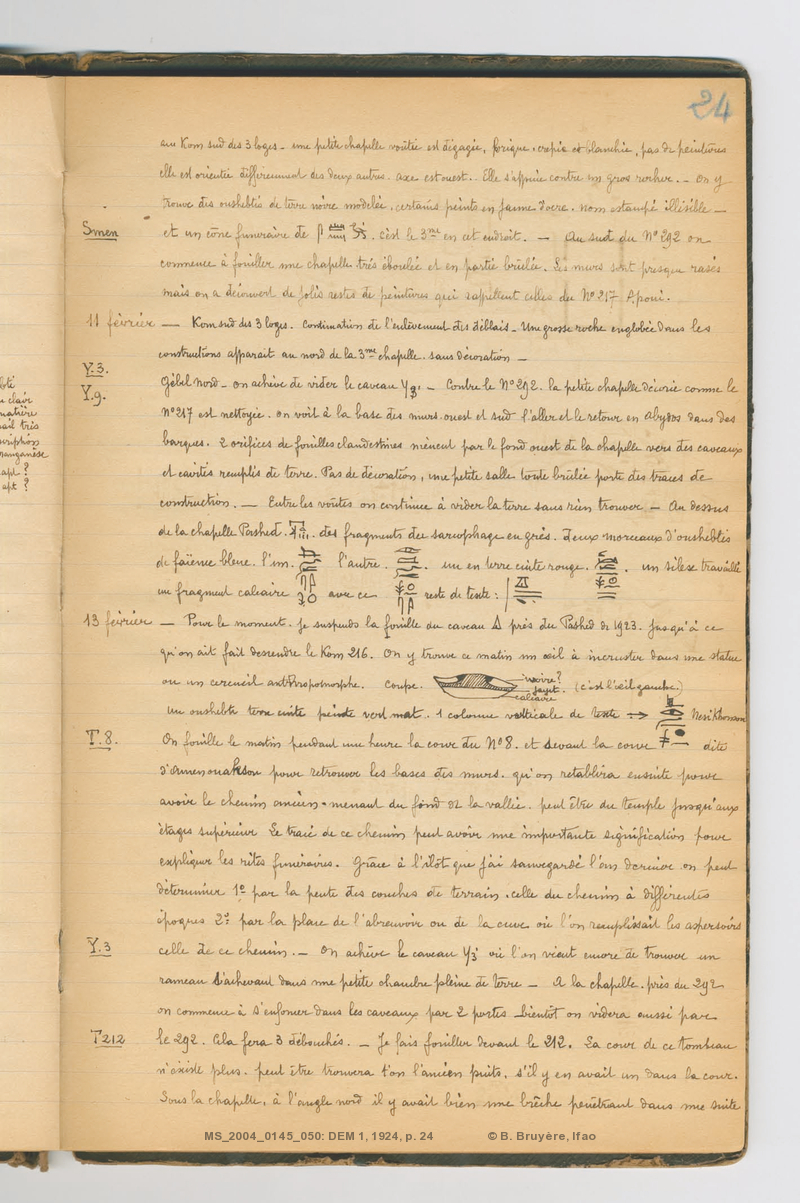 24
au Kom sud des 3 loges _ une petite chapelle voûtée est dégagée, brique, crepie et blanchie, pas de peintures
elle est orientée différemment des deux autres. axe est ouest.. Elle s'appuie contre un gros rocher. _ On y
trouve des oushebtis de terre noire modelée, certains peints en jaune d'ocre. nom estampé illisible _
Smen
et un cône funeraire de . c'est le 3me en cet endroit. _ Au sud du N° 292 on
commence à fouiller une chapelle très éboulée et en partie brûlée. Les murs sont presque rasés
mais on a découvert de jolis restes de peintures qui rappellent celles du N° 217 Apoui.
11 février _ Kom sud des 3 loges. Continuation de l'enlèvement des déblais _ Une grosse roche englobée dans les
constructions apparait au nord de la 3me chapelle. sans décoration _
Y.3.
Y.9.
Gébel Nord _ on achève de vider le caveau Y3. _ Contre le N° 292. la petite chapelle décorée comme le
N° 217 est nettoyée. on voit à la base des murs ouest et sud l'aller et le retour en Abydos dans des
barques. 2 orifices de fouilles clandestines mènent par le fond ouest de la chapelle vers des caveaux
et cavités remplis de terre. Pas de décoration, une petite salle toute brûlée porte des traces de
construction. _ Entre les voûtes on continue à vider la terre sans rien trouver _ Au dessus
de la chapelle Pashed. des fragments du sarcophage en grés. deux morceaux d'oushebtis
de faïence bleue. l'un. l'autre. un en terre cuite rouge. un silex travaillé
un fragment calcaire avec ce reste de texte :
13 février _ Pour le moment. Je suspends la fouille du caveau Δ près du Pashed de 1923. Jusqu'à ce
qu'on ait fait descendre le Kom 216. On y trouve ce matin un œil à incruster dans une statue
ou un cercueil anthropomorphe. Coupe. ivoire?
jayet. (c'est l'œil gauche.)
calcaire
Un oushebti terre cuite peinte vert mat. 1 colonne verticale de texte Nesi Khonsou
T.8.
On fouille le matin pendant une heure la cour du N° 8. et devant la cour dite
d'Amenonakson pour retrouver les bases des murs. qu'on rétablira ensuite pour
avoir le chemin ancien menant du fond de la vallée. peut être du temple jusqu'aux
étages supérieurs Le tracé de ce chemin peut avoir une importante signification pour
expliquer les rites funéraires. Grâce à l'îlot que j'ai sauvegardé l'an dernier on peut
déterminer 1° par la pente des couches de terrain. celle du chemin à différentes
époques 2° par la place de l'abreuvoir ou de la cuve où l'on remplissait les aspersoirs
Y.3
celle de ce chemin. _ On achève le caveau Y3 où l'on vient encore de trouver un
rameau s'achevant dans une petite chambre pleine de terre _ A la chapelle près du 292
on commence à s'enfoncer dans les caveaux par 2 portes bientôt on videra aussi par
T212
le 292. Cela fera 3 débouchés. _ Je fais fouiller devant le 212. La cour de ce tombeau
n'existe plus. peut être trouvera t'on l'ancien puits, s'il y en avait un dans la cour.
Sous la chapelle, à l'angle nord il y avait bien une brêche pénétrant dans une suite
clair
matière
ail très
manganèse
apt ?
apt ?
MS_2004_0145_050: DEM 1, 1924, p. 24 © B. Bruyère, Ifao